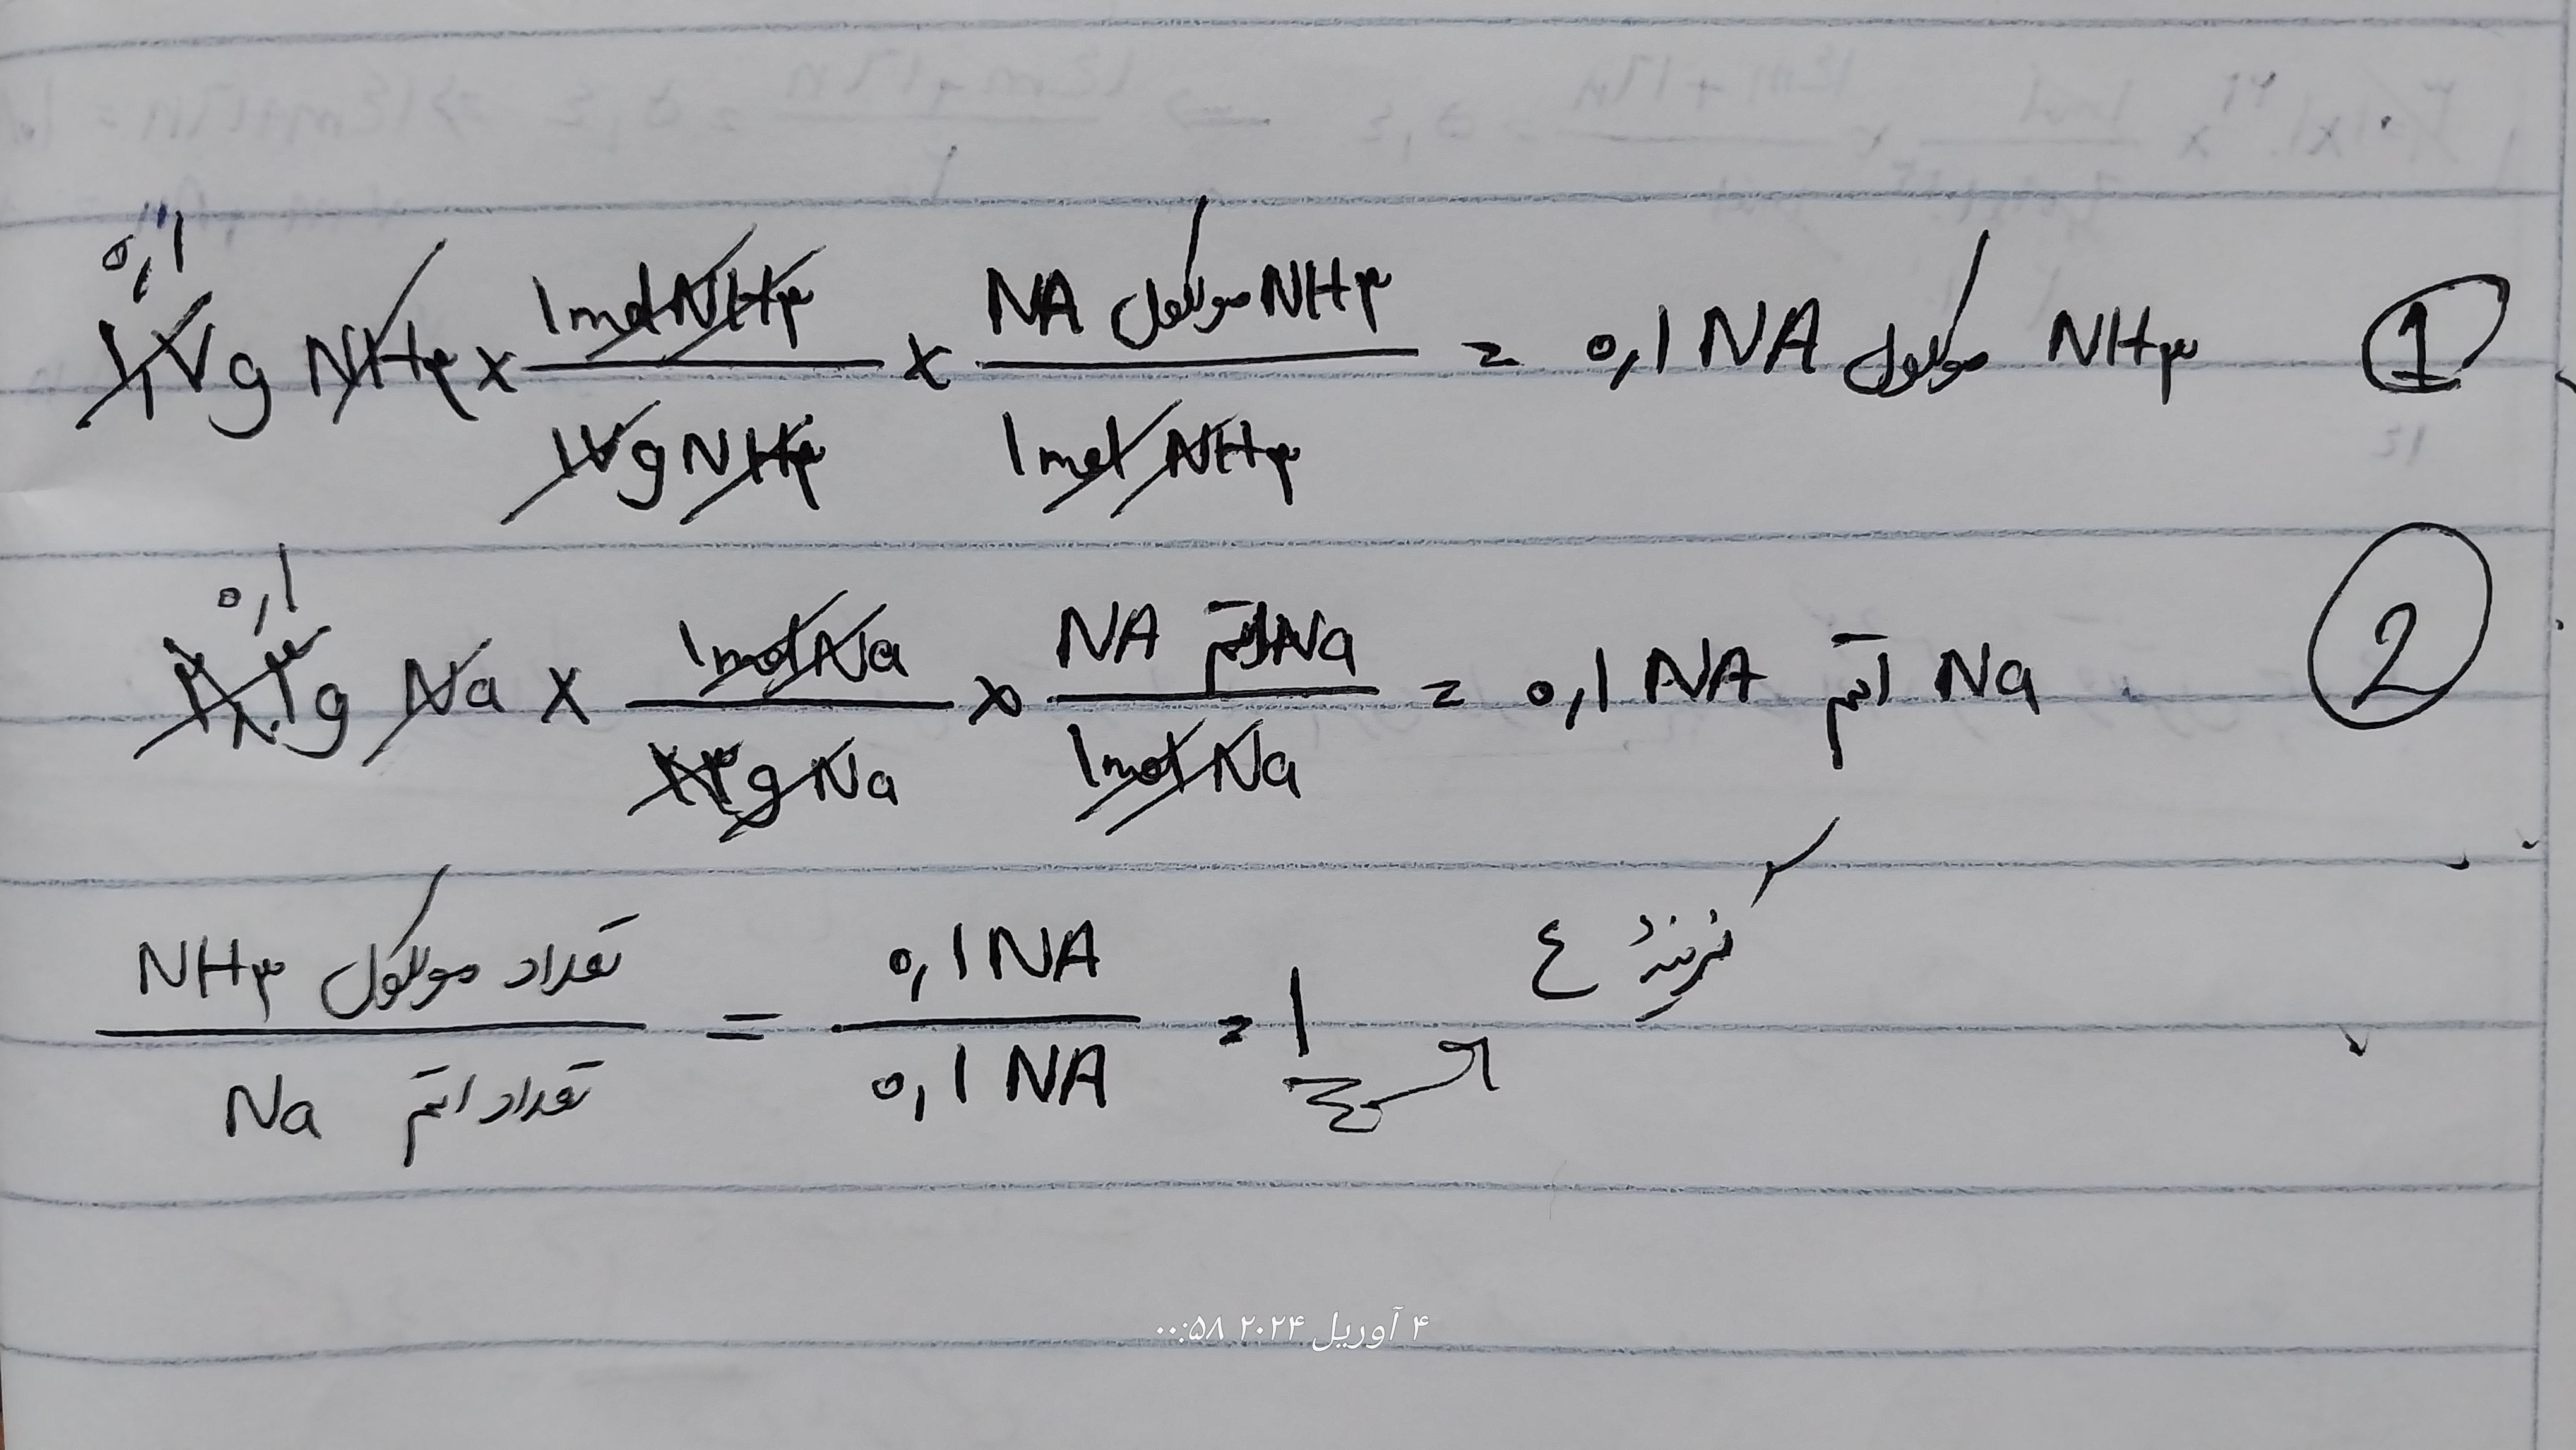 ۰,۱
۱,۷ g NH۳ × ۱ mol NH۳ / ۱۷ g NH۳ × NA مولکول NH۳ / ۱ mol NH۳ = ۰,۱ NA مولکول NH۳ 1
۰,۱
۲,۳ g Na × ۱ mol Na / ۲۳ g Na × NA اتم Na / ۱ mol Na = ۰,۱ NA اتم Na 2
تعداد مولکول NH۳ / تعداد اتم Na = ۰,۱ NA / ۰,۱ NA = ۱ گزینهٔ ٤
۴ آوریل ۲۰۲۴ ۰۰:۵۸